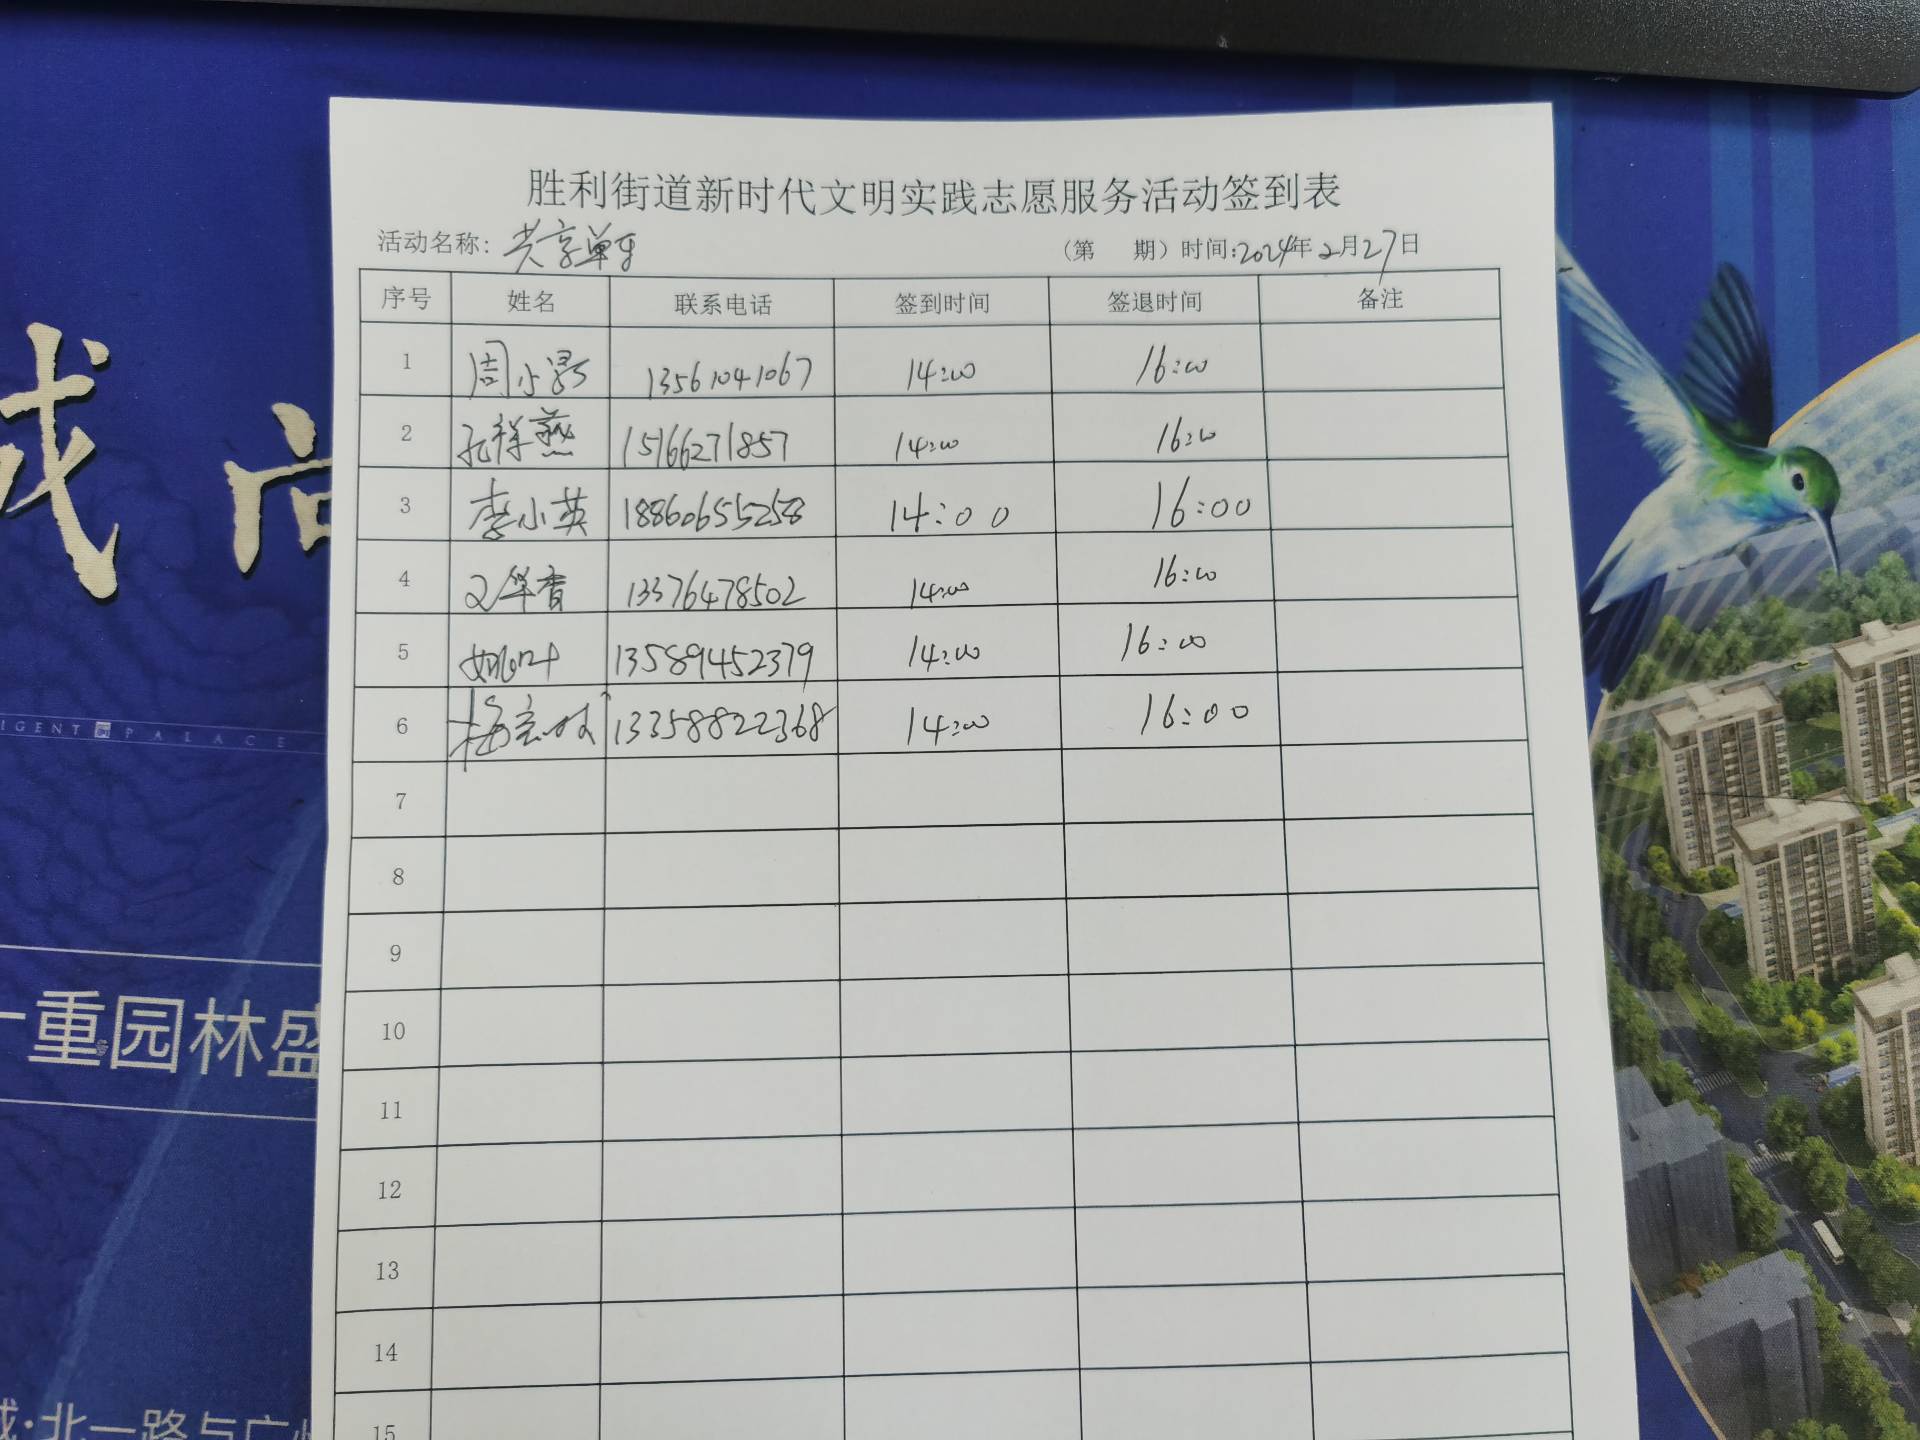 胜利街道新时代文明实践志愿服务活动签到表
活动名称：共享单车 （第 期）时间:2024年2月27日
序号 姓名 联系电话 签到时间 签退时间 备注
1 周小 13561041067 14:00 16:00
2 孔祥燕 15166271857 14:00 16:00
3 李小英 18860655258 14:00 16:00
4 华香 13376478502 14:00 16:00
5 姚叶 13589452379 14:00 16:00
6 13358822368 14:00 16:00
7
8
9
10
11
12
13
14
15
城
IGENT PALACE
一重园林盛
城·北一路与广州